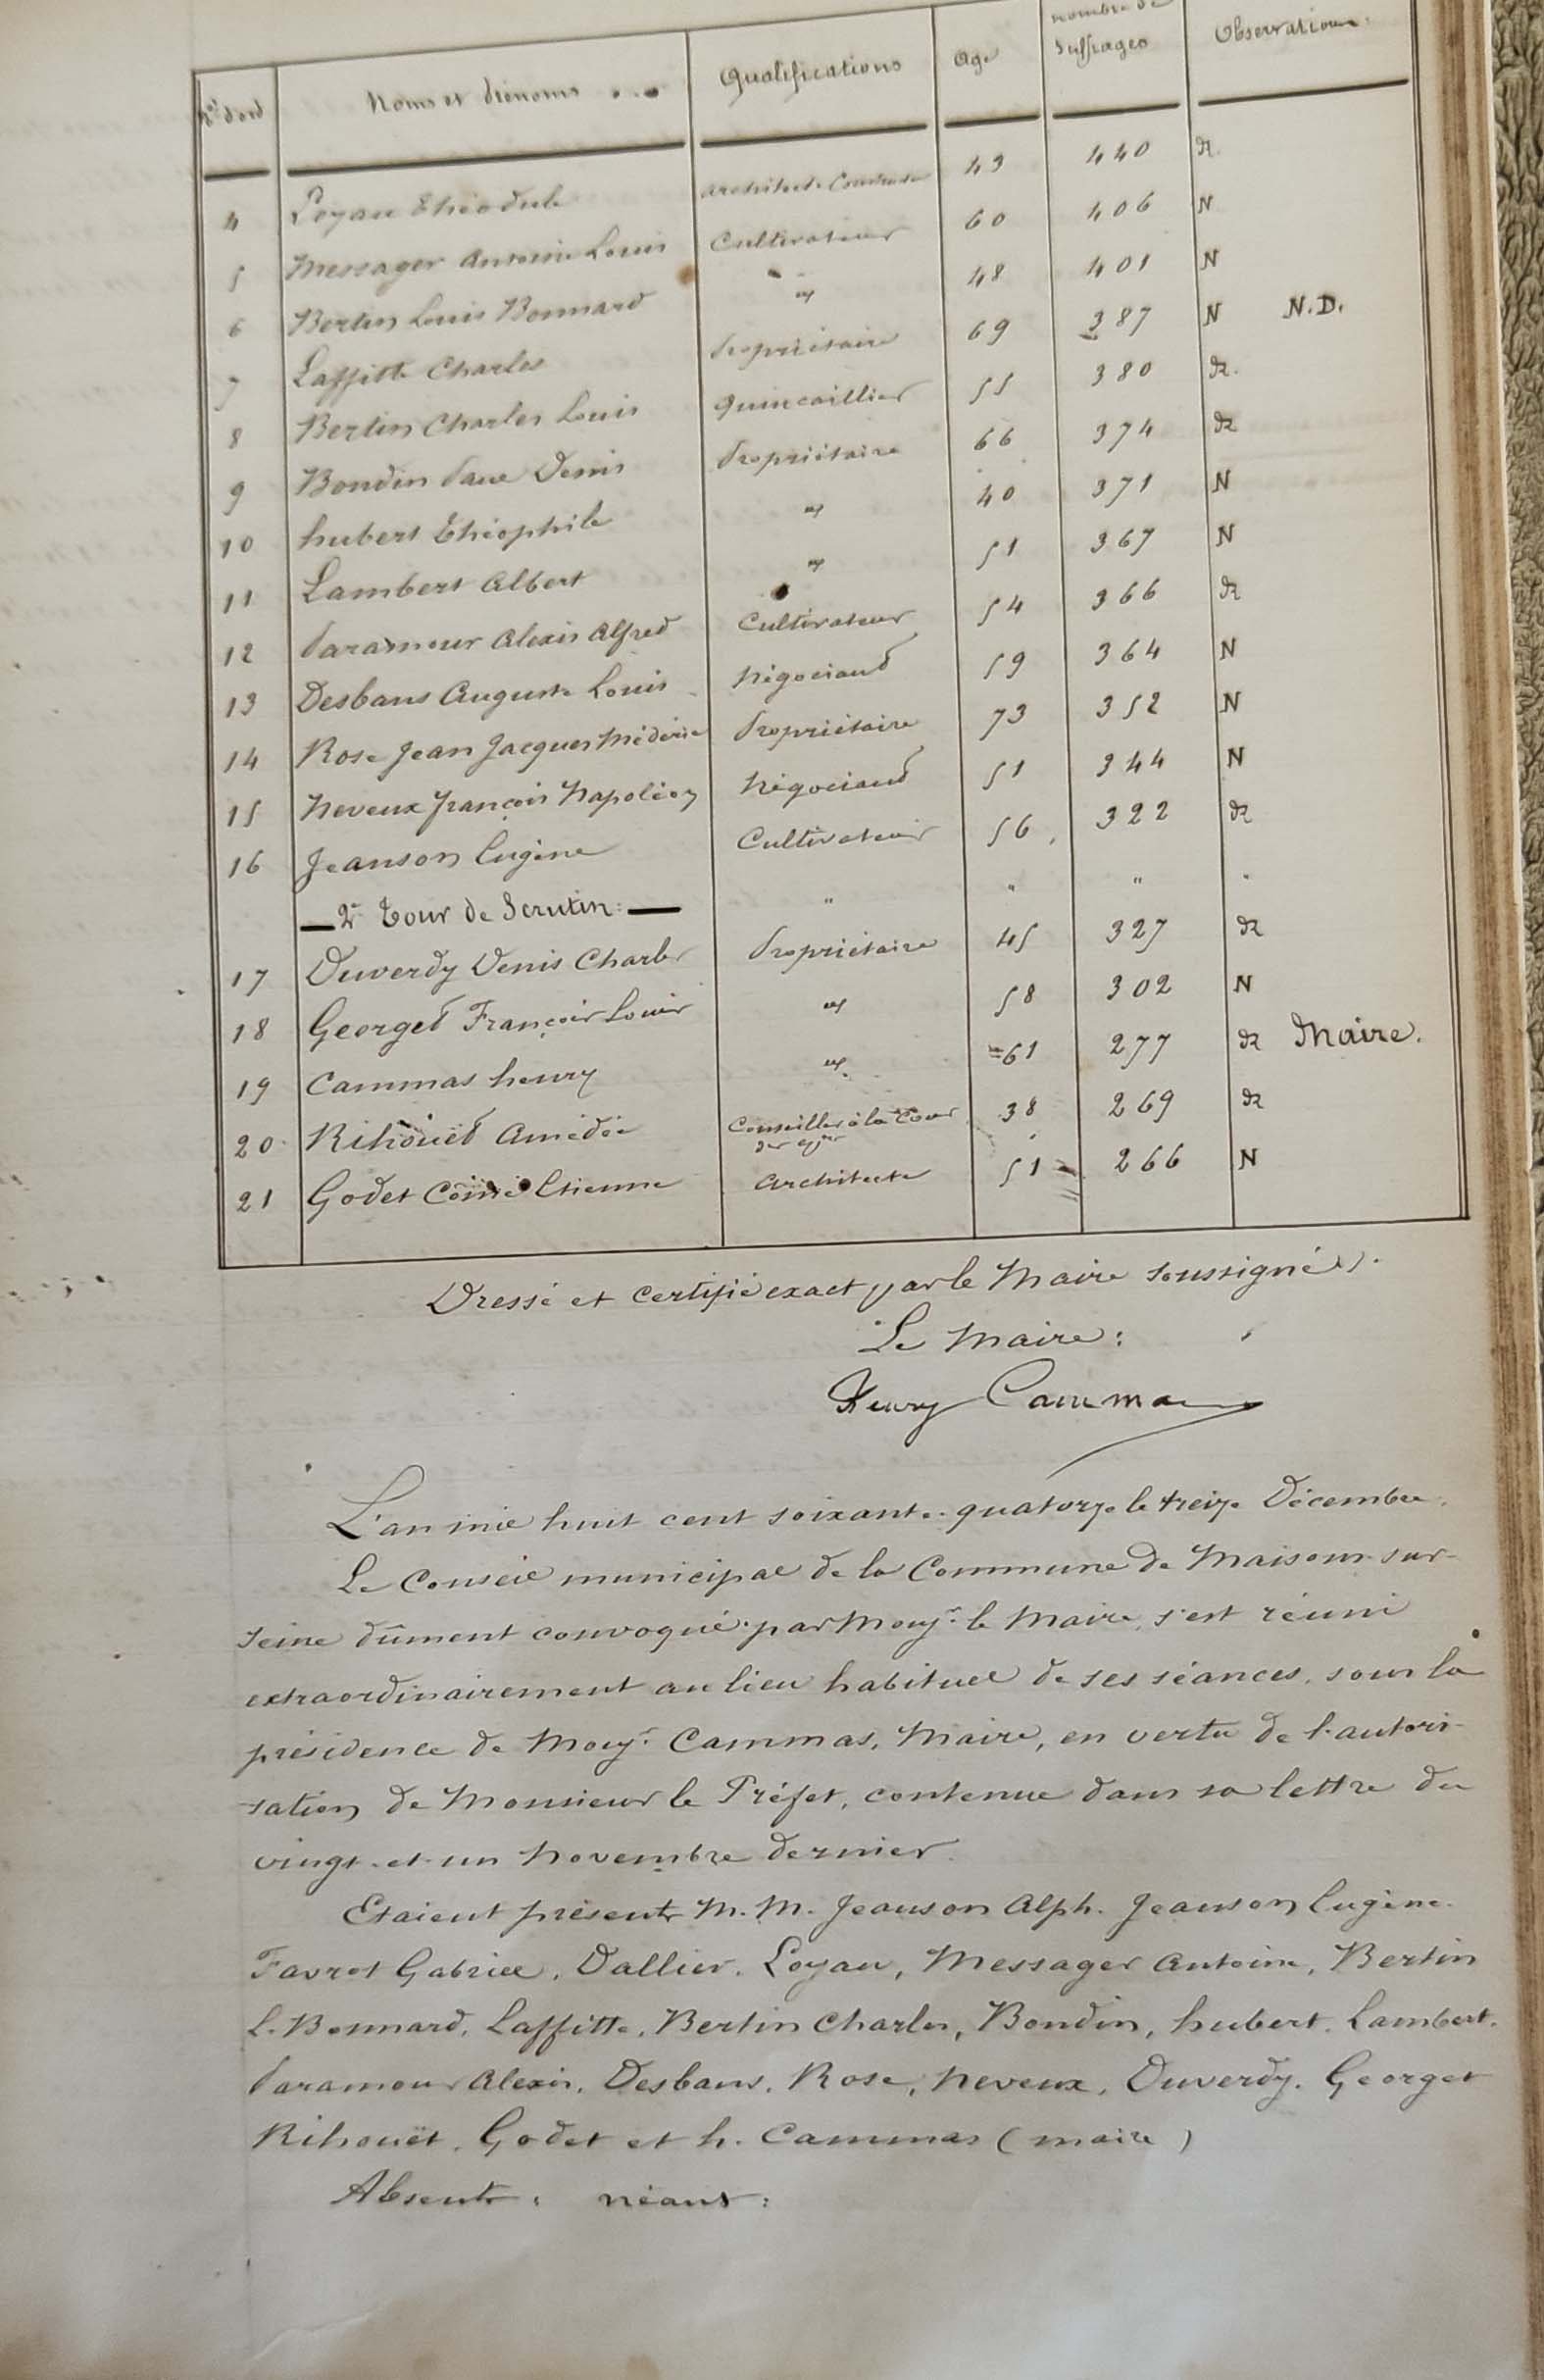 Nos d'ord Noms et Prénoms Qualifications Age nombre de Suffrages Observations.
4 Loyau Théodule architecte Constructr 43 440 R.
5 Messager Antoine Louis Cultivateur 60 406 N
6 Bertin Louis Bonnard " 48 401 N
7 Laffitte Charles Propriétaire 69 387 N N.D.
8 Bertin Charles Louis Quincaillier 55 380 R.
9 Bondin Paul Denis Propriétaire 66 374 R
10 hubert Théophile " 40 371 N
11 Lambert Albert " 51 367 N
12 Paramour Alexis Alfred Cultivateur 54 366 R
13 Desbans Auguste Louis Négociant 59 364 N
14 Rose Jean Jacques Médéric Propriétaire 73 352 N
15 Neveux François Napoléon Négociant 51 344 N
16 Jeanson Eugène Cultivateur 56 322 R
— 2e Tour de Scrutin: — " " " "
17 Duverdy Denis Charles Propriétaire 45 327 R
18 Georget François Louis " 58 302 N
19 Cammas henry " 61 277 R Maire.
20 Rihouët Amédée Conseiller à la Cour des 38 269 R
21 Godet Côme Etienne Architecte 51 266 N
Dressé et certifié exact par le Maire soussigné.
Le Maire:
Henry Cammas
L'an mil huit cent soixante-quatorze le treize Décembre.
Le Conseil municipal de la Commune de Maisons-sur-
Seine dûment convoqué par Monsr. le Maire, s'est réuni
extraordinairement au lieu habituel de ses séances, sous la
présidence de Monsr. Cammas, Maire, en vertu de l'autori-
sation de Monsieur le Préfet, contenue dans sa lettre du
vingt-et-un novembre dernier.
Etaient présents M.M. Jeanson Alph. Jeanson Eugène.
Favrot Gabriel, Dallier, Loyau, Messager Antoine, Bertin
L. Bonnard, Laffitte, Bertin Charles, Bondin, hubert, Lambert.
Paramour Alexis, Desbans, Rose, Neveux, Duverdy, Georget
Rihouët, Godet et h. Cammas (maire)
Absents: néant: